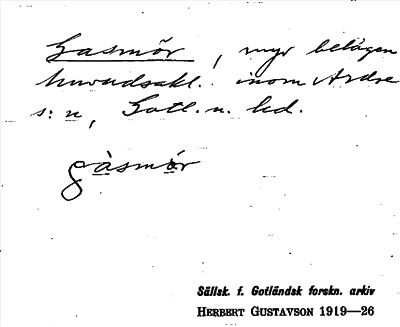 Gasmör, myr belägen
huvudsakl. inom Ardre
s:n, Gotl. n. hd.
gàsmór
Sällsk. f. Gotländsk forskn. arkiv
HERBERT GUSTAVSON 1919—26